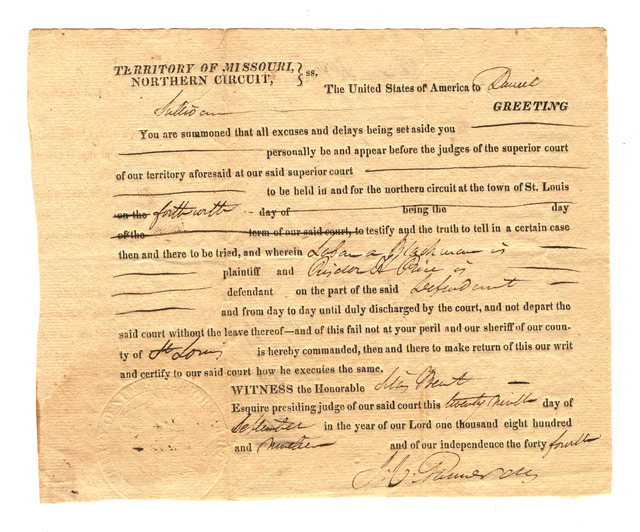 TERRITORY OF MISSOURI, } ss.
NORTHERN CIRCUIT,
The United States of America to Daniel
GREETING
You are summoned that all excuses and delays being set aside you
personally be and appear before the judges of the superior court
of our territory aforesaid at our said superior court
to be held in and for the northern circuit at the town of St. Louis
on the forthwith day of being the day
of the term of our said court, to testify and the truth to tell in a certain case
then and there to be tried, and wherein a Blackman is
plaintiff and is
defendant on the part of the said Defendant
and from day to day until duly discharged by the court, and not depart the
said court without the leave thereof—and of this fail not at your peril and our sheriff of our coun-
ty of St Louis is hereby commanded, then and there to make return of this our writ
and certify to our said court how he executes the same.
WITNESS the Honorable
Esquire presiding judge of our said court this twenty ninth day of
September in the year of our Lord one thousand eight hundred
and nineteen and of our independence the forty fourth